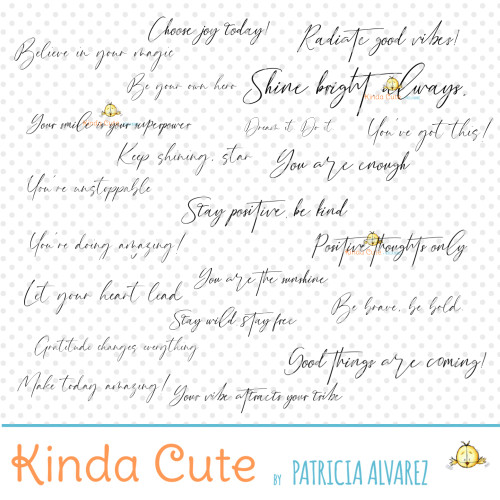 Choose joy today!
Radiate good vibes!
Believe in your magic
Be your own hero
Shine bright always.
Kinda Cute
Your smile is your superpower
Kinda Cute
Dream it. Do it
You've got this!
Keep shining, star
You are enough
You're unstoppable
Stay positive, be kind
You're doing amazing!
Positive thoughts only
Kinda Cute
You are the sunshine
Let your heart lead
Be brave, be bold
Stay wild stay free
Gratitude changes everything
Good things are coming!
Make today amazing!
Your vibe attracts your tribe
Kinda Cute BY PATRICIA ALVAREZ